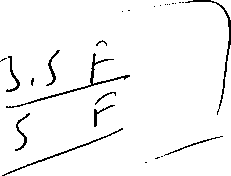 3.5 F
5 F